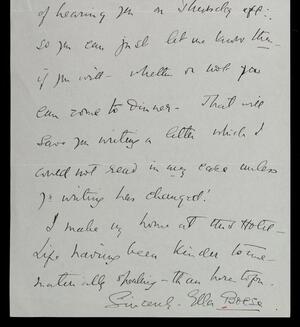 of hearing you on Thursday aft:
so you can just let me know then
if you will - whether or not you
can come to Dinner - That will
save you writing a letter which I
could not read in any case unless
yr writing has changed!
I make my home at this Hotel -
Life having been kinder to me -
materially speaking - than heretofore.
Sincerely - Ella